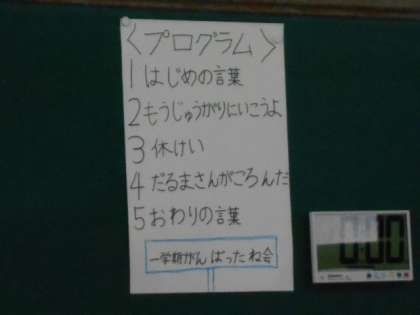 <プログラム>
1 はじめの言葉
2 もうじゅうがりにいこうよ
3 休けい
4 だるまさんがころんだ
5 おわりの言葉
一学期がんばったね会
0:00